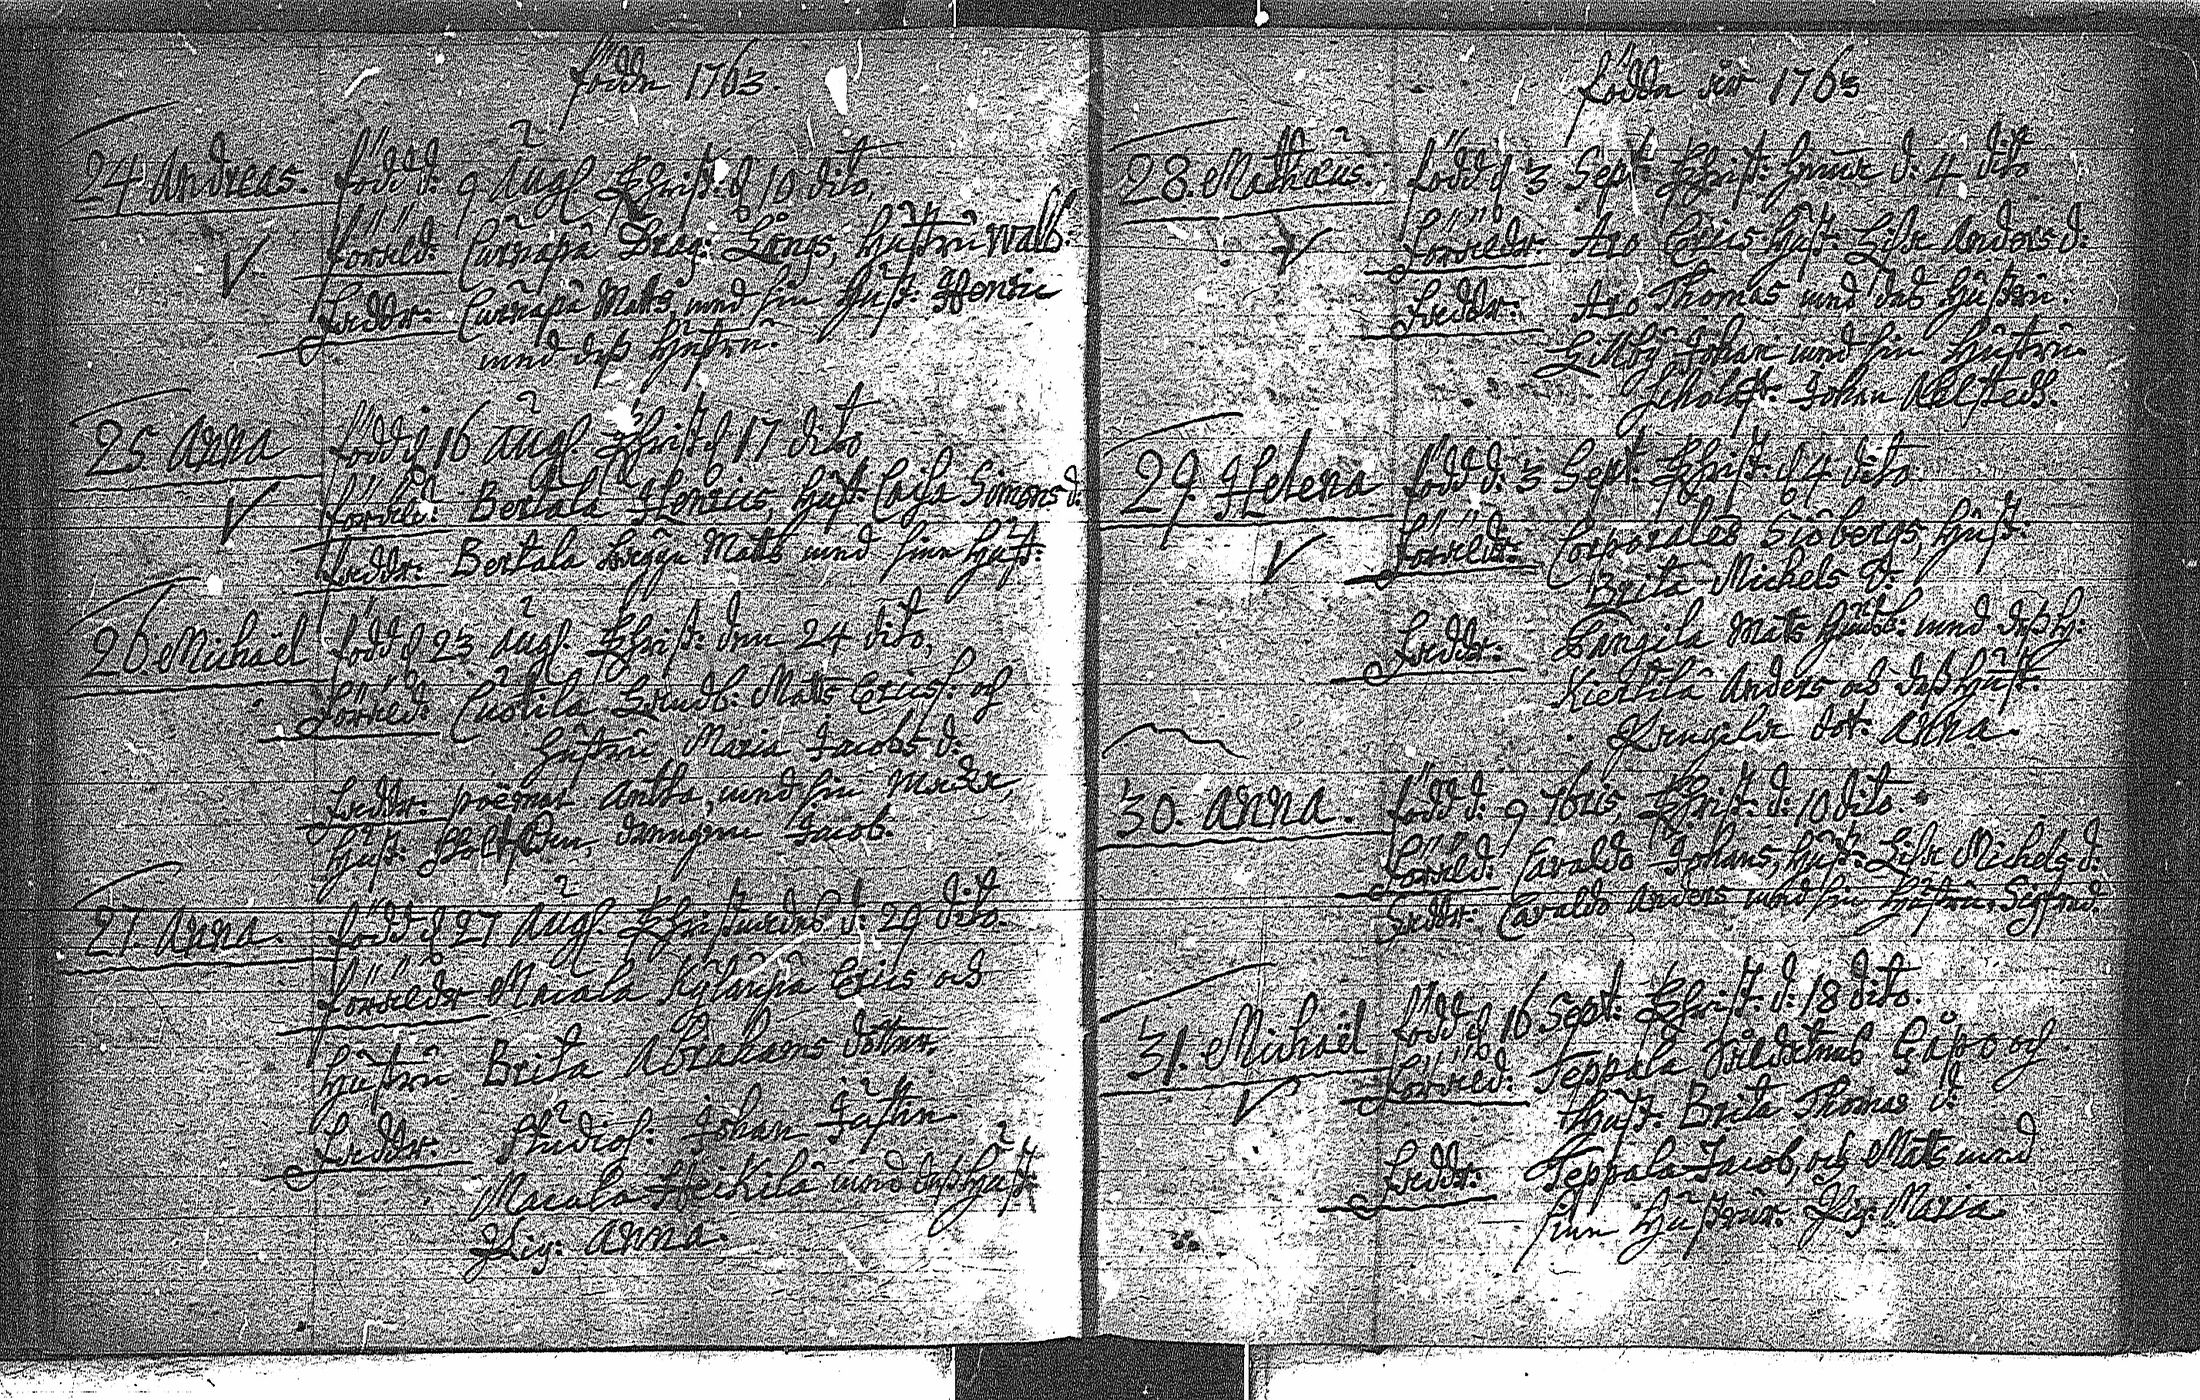 födde 1763.
24 Andreas. född d: 9 Aug. Christ: d 10 dito,
föräld: Curnapä Drag: Långs, hustru Walb:
Fadder: Curnapä Matts, med sin hust: Henric
med dess hustru.
25. Anna född d 16 Aug. Christ d 17 dito
föräld: Bertala Henrics, hust: Caisa Simons d:
Fadder: Bertala Matts med sinn hust:
26. Michaël född d 23 Aug. Christ: den 24 dito,
Föräld: Cuotila Matts Ericss: och
hustru Maria Jacobs d:
Fadder: Antta, med sin
hust: Jacob.
27. Anna. född d 27 Aug. Christnades d: 29 dito.
föräldr Macala Kylänpä Erics och
hustru Brita Abrahams dotter.
Fadder: Studios: Johan
Macala Heikilä med dess hust:
Pig: Anna.
födde år 1763
28. Mathæus. född d 3 Sept Christ: hemma d: 4 dito
Föräldr: Aro Erics hust: Lisa Anders d:
Fadder: Aro Thomas med dess hustru.
Gillby Johan med sin hustru
Scholast: Johan
29. Helena född d: 3 Sept. Christ: d 4 dito.
Föräldr: Corporales Siöbergs, hust:
Brita Michels d:
Fadder: Mats med dess h:
Kiertilä Anders och dess hust:
dot: Anna.
30. Anna. född d: 9 7bris, Christ: d: 10 dito.
Föräld: Caraldo Johans, hust: Lisa Michels d:
Fadder: Caraldo Anders med sin hustru Sigfred.
31. Michaël född d 16 Sept: Christ: d: 18 dito.
Föräld: Teppala och
hust: Brita Thomas d:
Fadder: Teppala Jacob, och Matts med
sinn hustrur. Pig: Maria.